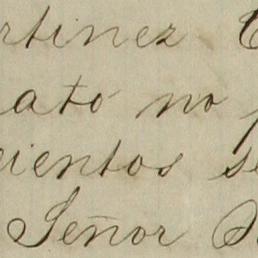 rtinez C
ató no p
cientos se
Señor D